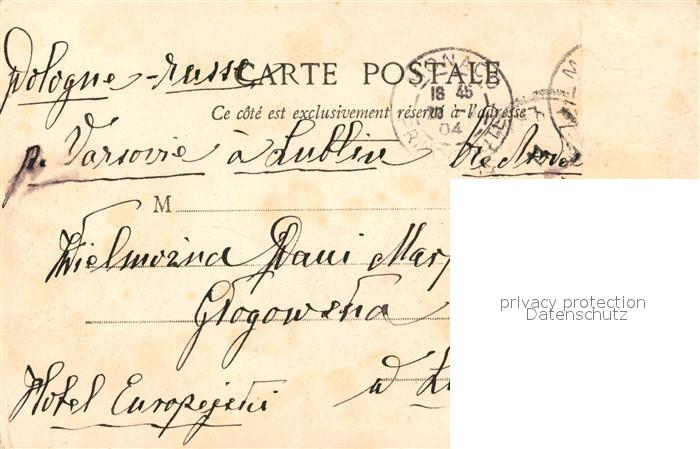 Pologne-russe
CARTE POSTALE
18 45
04
Ce côté est exclusivement réservé à l'adresse
p. Varsovie à Lublin
M
Wielmożna Pani Mar
Głogowska
w Lu
Hotel Europejski
privacy protection
Datenschutz